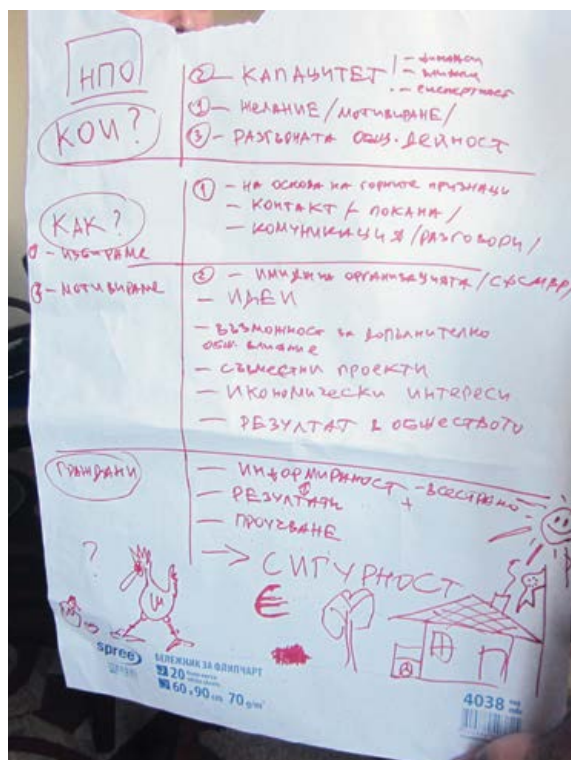 НПО
КОИ?
② – КАПАЦИТЕТ / – финанси
– експертност
① – ЖЕЛАНИЕ /МОТИВИРАНЕ/
③ – РАЗГЪРНАТА ОБЩ. ДЕЙНОСТ
КАК?
① – ИЗБИРАМЕ
② – МОТИВИРАМЕ
① – НА ОСНОВА НА ГОРНИТЕ ПРИЗНАЦИ
– КОНТАКТ /– ПОКАНА/
– КОМУНИКАЦИЯ /РАЗГОВОРИ/
② – ИМИДЖ НА ОРГАНИЗАЦИЯТА
– ИДЕИ
– ВЪЗМОЖНОСТ ЗА ДОПЪЛНИТЕЛНО
ОБЩ. ВЛИЯНИЕ
– СЪВМЕСТНИ ПРОЕКТИ
– ИКОНОМИЧЕСКИ ИНТЕРЕСИ
– РЕЗУЛТАТ В ОБЩЕСТВОТО
ГРАЖДАНИ
– ИНФОРМИРАНОСТ – ВСЕСТРАННО
– РЕЗУЛТАТИ +
– ПРОУЧВАНЕ
→ СИГУРНОСТ
?
€
spree
БЕЛЕЖНИК ЗА ФЛИПЧАРТ
20
60 x 90 cm 70 g/m²
4038